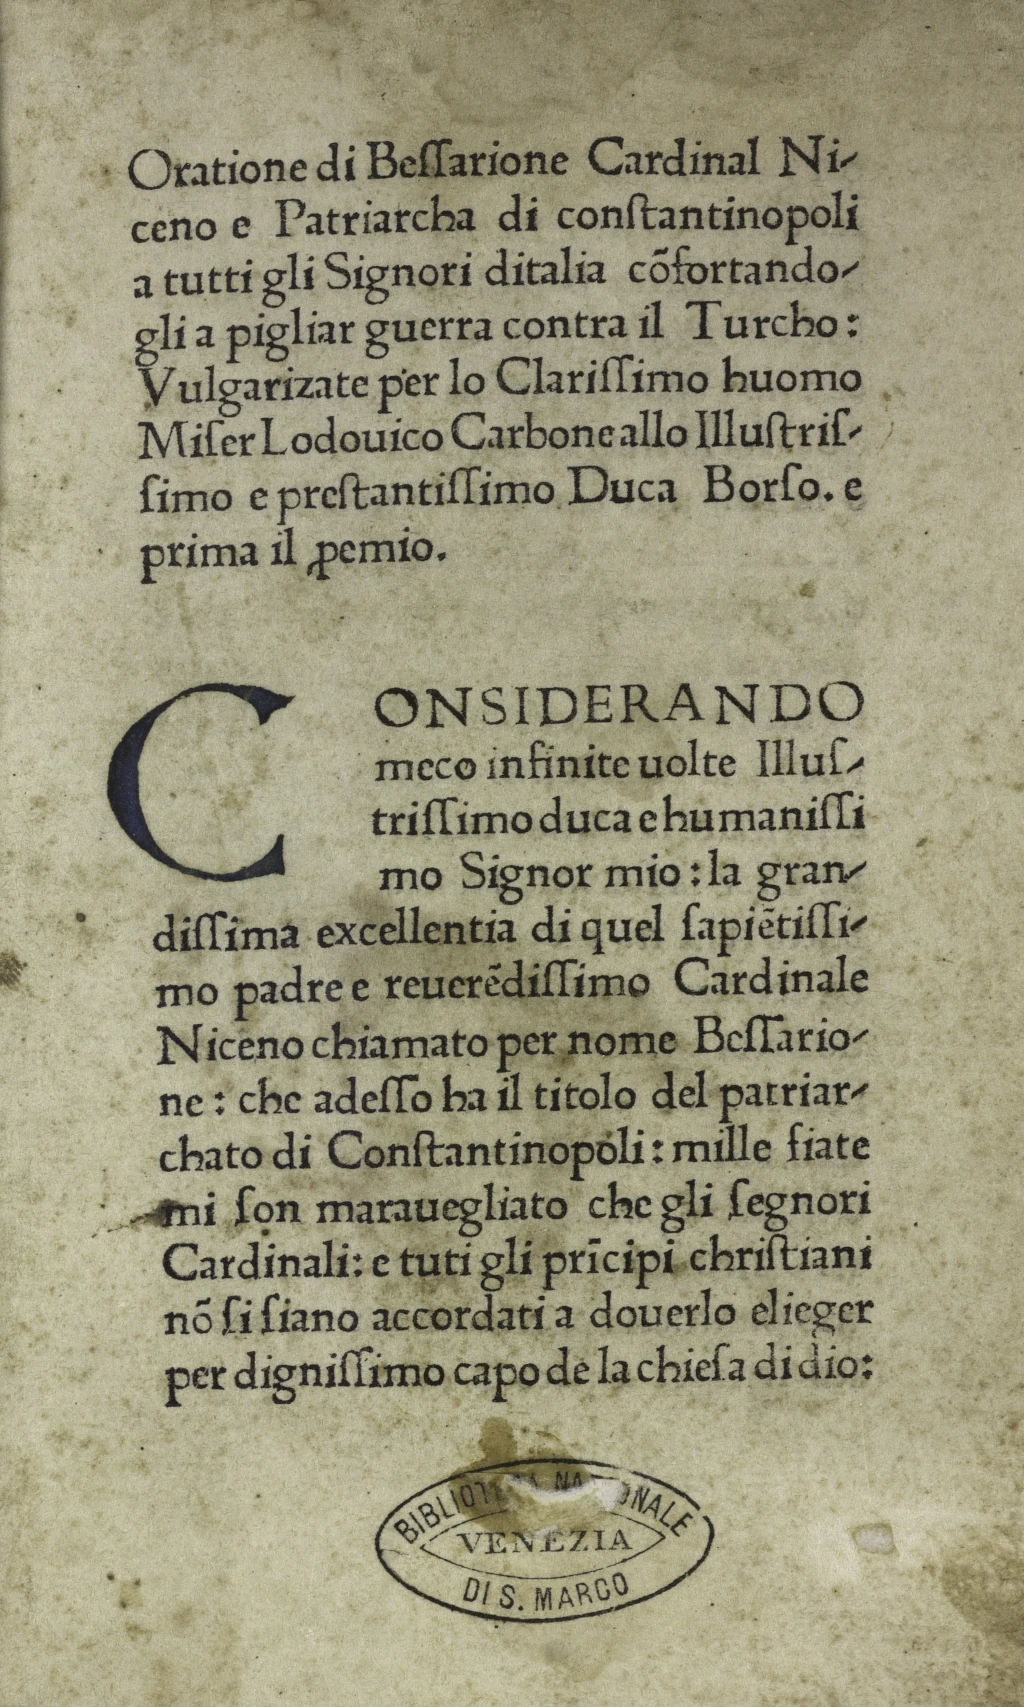 Oratione di Beſſarione Cardinal Ni-
ceno e Patriarcha di conſtantinopoli
a tutti gli Signori ditalia cõfortando-
gli a pigliar guerra contra il Turcho:
Vulgarizate per lo Clariſſimo huomo
Miſer Lodouico Carbone allo Illuſtriſ-
ſimo e preſtantiſſimo Duca Borſo. e
prima il ꝓemio.
CONSIDERANDO
meco infinite uolte Illuſ-
triſſimo duca e humaniſſi
mo Signor mio: la gran-
diſſima excellentia di quel ſapiẽtiſſi-
mo padre e reuerẽdiſſimo Cardinale
Niceno chiamato per nome Beſſario-
ne: che adeſſo ha il titolo del patriar-
chato di Conſtantinopoli: mille fiate
mi ſon marauegliato che gli ſegnori
Cardinali: e tuti gli prĩcipi chriſtiani
nõ ſi ſiano accordati a douerlo elieger
per digniſſimo capo de la chieſa di dio:
BIBLIOTECA NAZIONALE
VENEZIA
DI S. MARCO